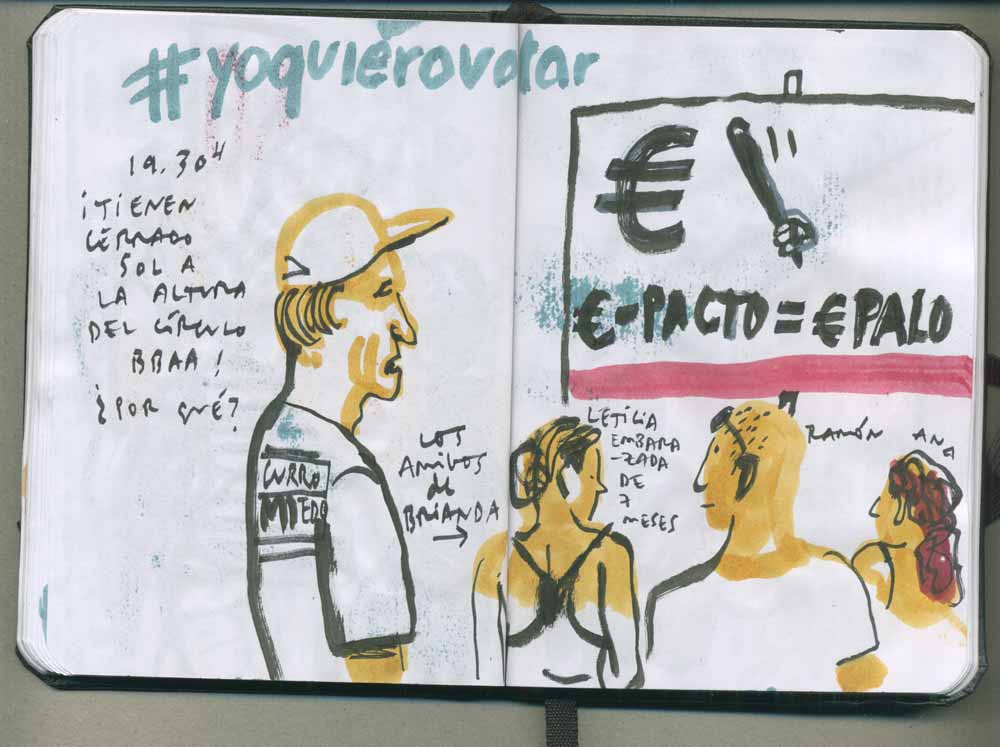 #yoquierovotar
19.30H
¡TIENEN
CERRADO
SOL A
LA ALTURA
DEL CÍRCULO
BBAA!
¿POR QUÉ?
CURRO
MIEDO
LOS
AMIGOS
de
BRIANDA
→
€
€-PACTO = €PALO
LETICIA
EMBARA
-ZADA
DE
7
MESES
RAMÓN
ANA